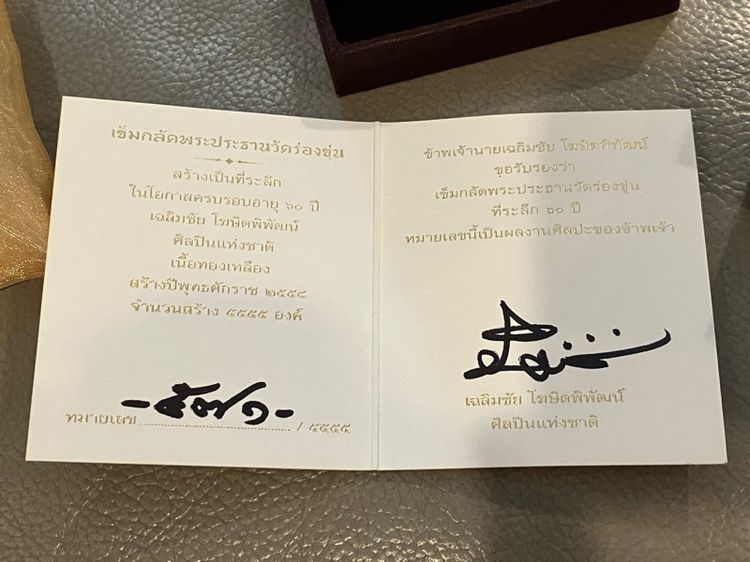 เข็มกลัดพระประธานวัดร่องขุ่น
สร้างเป็นที่ระลึก
ในโอกาสครบรอบอายุ ๖๐ ปี
เฉลิมชัย โฆษิตพิพัฒน์
ศิลปินแห่งชาติ
เนื้อทองเหลือง
สร้างปีพุทธศักราช ๒๕๕๘
จำนวนสร้าง ๕๕๕๕ องค์
หมายเลข -๕๗๑- / ๕๕๕๕
ข้าพเจ้านายเฉลิมชัย โฆษิตพิพัฒน์
ขอรับรองว่า
เข็มกลัดพระประธานวัดร่องขุ่น
ที่ระลึก ๖๐ ปี
หมายเลขนี้เป็นผลงานศิลปะของข้าพเจ้า
เฉลิมชัย โฆษิตพิพัฒน์
ศิลปินแห่งชาติ